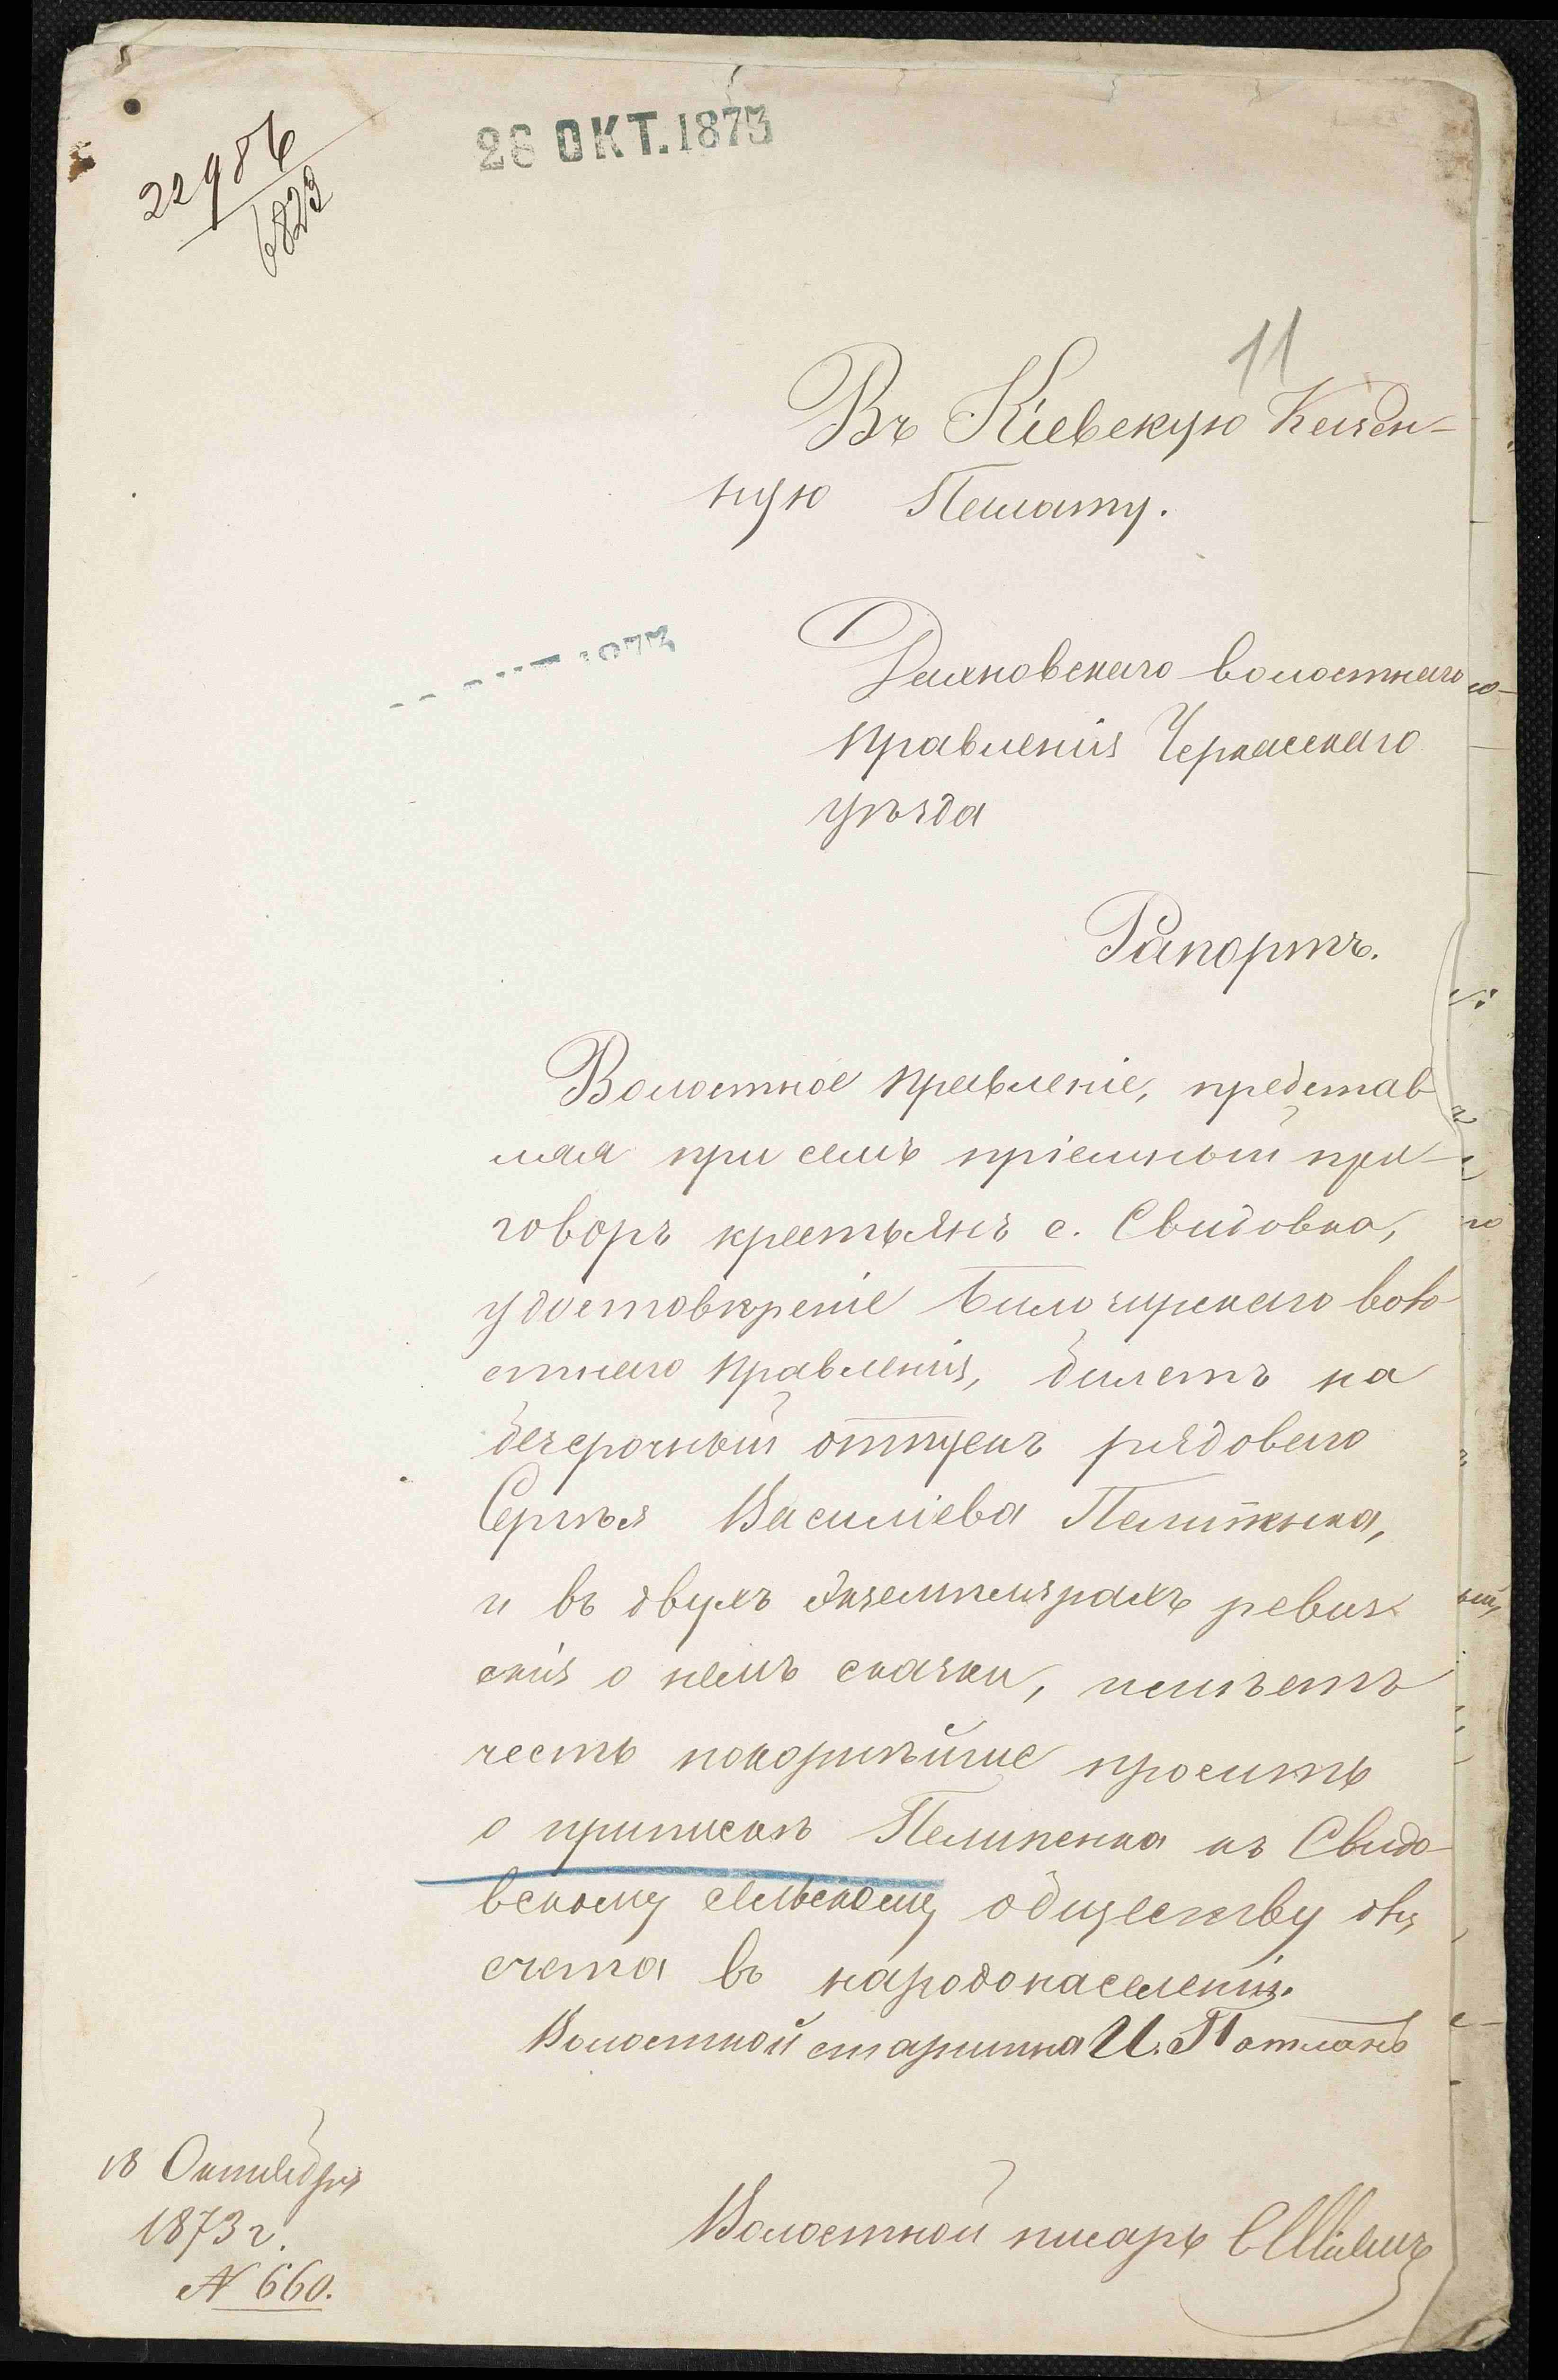 22986
6823
26 ОКТ.1873
11
Въ Кіевскую Казен-
ную Палату.
1873
Дахновскаго волостнаго
правленія Черкасскаго
уѣзда
Рапортъ.
Волостное правленіе, представ
ляя при семъ пріемный при-
говоръ крестьянъ с. Свидовка,
удостовѣреніе воло
стнаго правленія, билетъ на
безсрочный отпускъ рядоваго
Сергѣя Василіева Пелипенка,
и въ двухъ экземплярахъ ревиз
скія о немъ сказки, имѣетъ
честь покорнѣйше просить
о припискѣ Пелипенка къ Свидо-
вскому сельскому обществу для
счета въ народонаселеніи.
Волостной старшина И.
18 Октября
1873 г.
N 660.
Волостной писарь